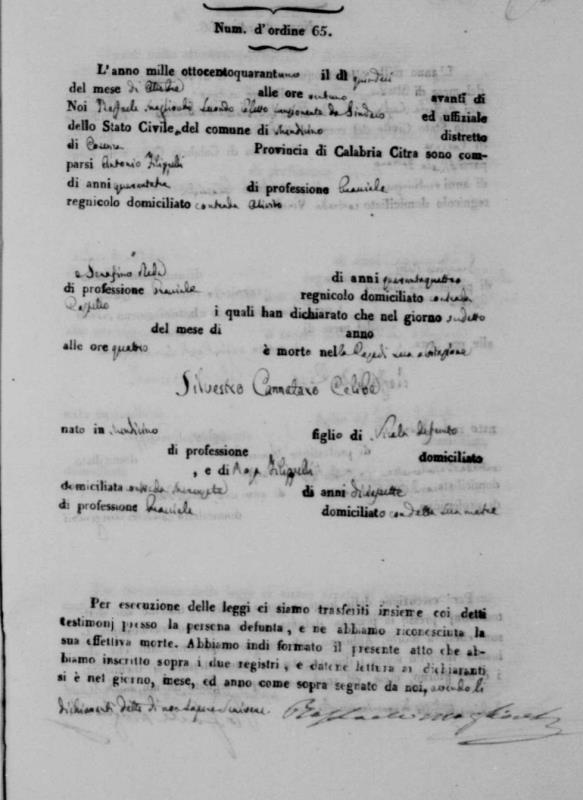 Num. d'ordine 65.
L'anno mille ottocentoquarantuno il dì quindici
del mese di Ottobre alle ore avanti di
Noi Raffaele funzionante da Sindaco ed uffiziale
dello Stato Civile, del comune di Mendicino distretto
di Cosenza Provincia di Calabria Citra sono com-
parsi Antonio Filippelli
di anni quarantatre di professione bracciale
regnicolo domiciliato contrada
e Serafino Reda di anni quarantaquattro
di professione bracciale regnicolo domiciliato contrada
i quali han dichiarato che nel giorno sudetto
del mese di anno
alle ore quattro è morto nella casa di sua abitazione
Silvestro Cannataro Celibe
nato in Mendicino figlio di Nicola defunto
di professione domiciliato
, e di Rosa Filippelli
domiciliata contrada di anni diciasette
di professione bracciale domiciliato con detta sua madre
Per esecuzione delle leggi ci siamo trasferiti insieme coi detti
testimonj presso la persona defunta, e ne abbiamo riconosciuta la
sua effettiva morte. Abbiamo indi formato il presente atto che ab-
biamo inscritto sopra i due registri, e datene lettura ai dichiaranti
si è nel giorno, mese, ed anno come sopra segnato da noi, avendo li
dichiaranti detto di non sapere scrivere. Raffaele